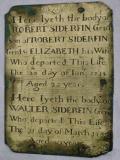 Here lyeth the body of
ROBERT SIDERFIN Gent
son of ROBERT SIDERFIN
Gent & ELIZABETH his Wife
Who departed This Life
The day of Jan.
Aged 32 years.
Here lyeth the body of
WALTER SIDERFIN Gent
Who departed This Life
The 21 day of March
Aged years